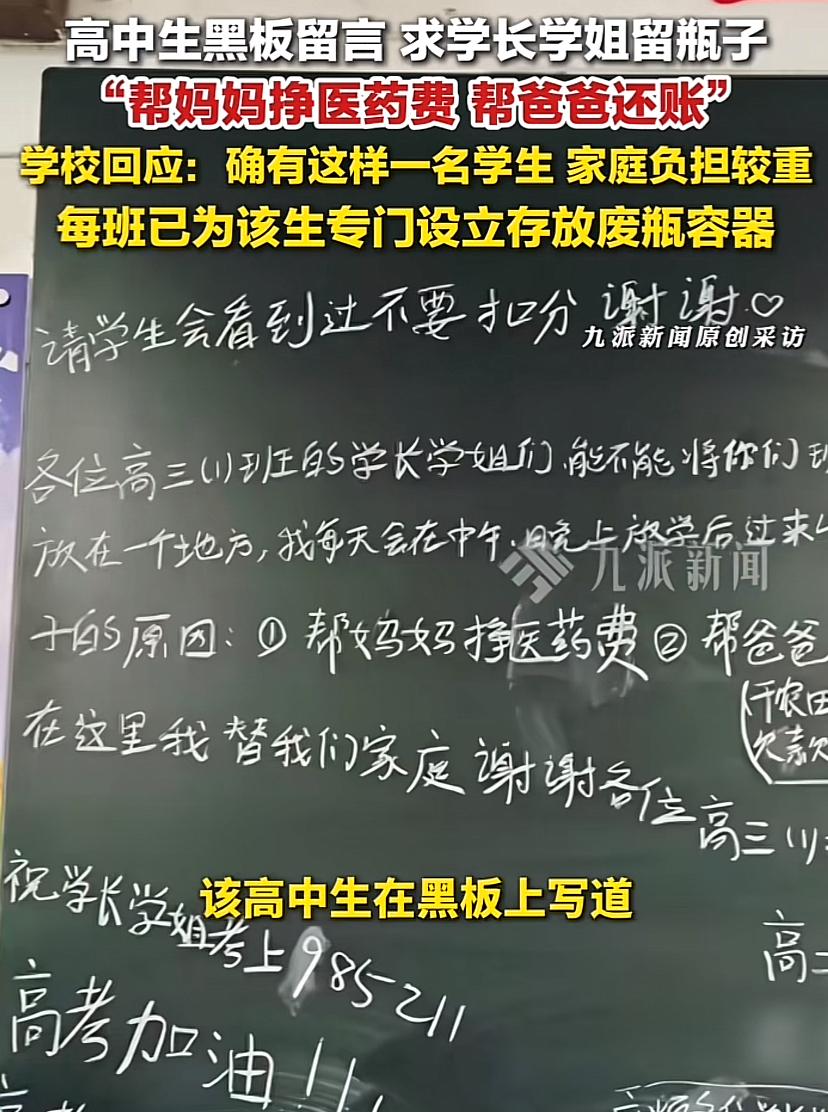 高中生黑板留言 求学长学姐留瓶子
“帮妈妈挣医药费 帮爸爸还账”
学校回应：确有这样一名学生 家庭负担较重
每班已为该生专门设立存放废瓶容器
请学生会看到过不要扣分 谢谢♡
九派新闻原创采访
各位高三(1)班的学长学姐们,能不能将你们
放在一个地方,我每天会在中午、晚上放学后过来
九派新闻
子的原因:①帮妈妈挣医药费②帮爸爸
(干农田
欠款
在这里我替我们家庭谢谢各位高三(1)
祝学长学姐考上985 211
该高中生在黑板上写道
高二
高考加油!!